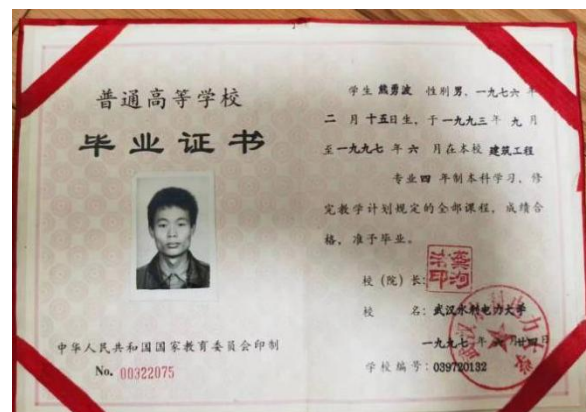 普通高等学校
毕业证书
中华人民共和国国家教育委员会印制
No. 00322075
学生 熊勇波 性别 男，一九七六 年
二 月 十五日生，于 一九九三 年 九 月
至 一九九七 年 六 月在本校 建筑工程
专业 四 年制本科学习，修
完教学计划规定的全部课程，成绩合
格，准予毕业。
校（院）长：
校 名：武汉水利电力大学
一九九七 年 六 月 廿四日
学校编号：039720132